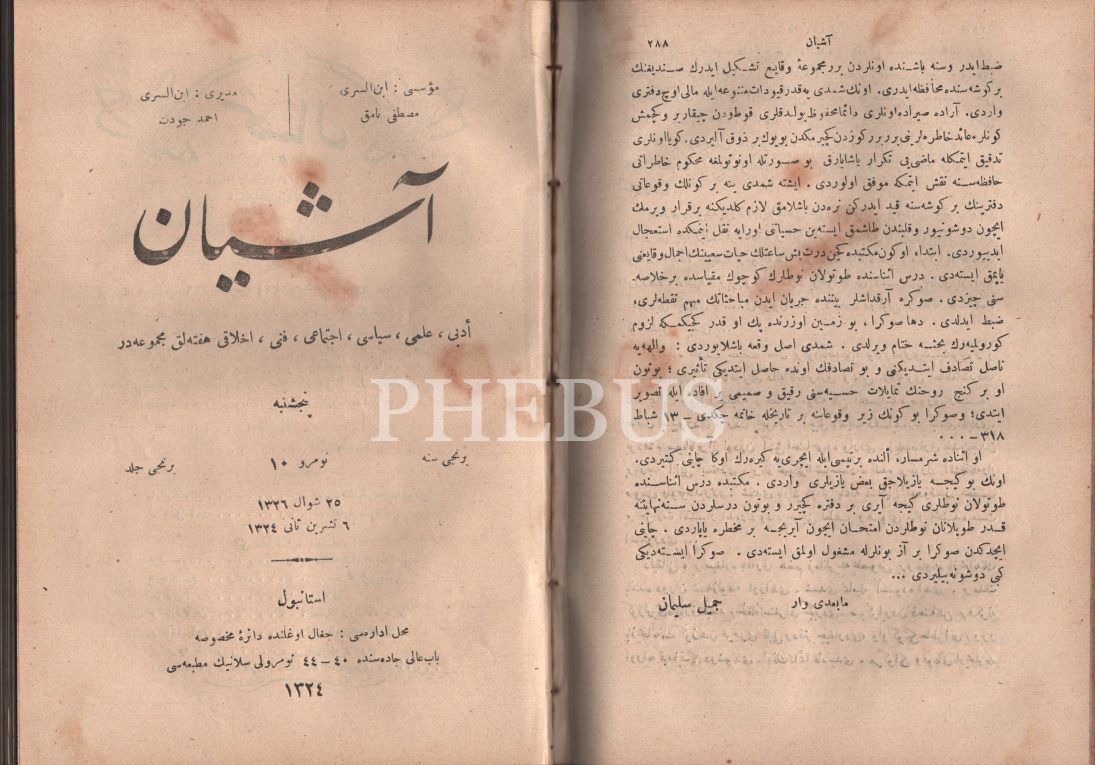 آشیان
٢٨٨
ضبط ایدر وسنه باشنده اونلردن بررمجموعهٔ وقایع تشکیل ایدرك صندیغنك
برکوشه‌سنده محافظه ایدری. اونك شمدی یه‌قدر قیودات متنوعه ایله مالی اوچ دفتری
واردی. آراده صیراده اونلری دائما محفوظ بولندقلری قوطودن چیقاریر وکچمش
کونلره عائد خاطره‌لرینی بر بر کوزدن کچیرمکدن بویوك بر ذوق آلیردی. کویا اونلری
تدقیق ایتمکله ماضی‌یی تکرار یاشایارق بو صورتله اونوتولمغه محکوم خاطراتی
حافظه‌سنه نقش ایتمکه موفق اولوردی. ایشته شمدی ینه بر کونلك وقوعاتی
دفترینك بر کوشه‌سنه قید ایدرکن نره‌دن باشلامق لازم کلدیکنه برقرار ویرمك
ایچون دوشونیور وقلبندن طاشمق ایسته‌ین حسیاتنی اورایه نقل ایتمکده استعجال
ایدییوردی. ابتدا، اوکون مکتبده کچن درت بش ساعتلك حیات سعیینك اجمال وقایعنی
یاپمق ایسته‌دی. درس اثناسنده طوتولان نوطلرك کوچوك مقیاسده برخلاصه‌
سنی چیزدی. صوکره آرقداشلر بیننده جریان ایدن مباحثاتك مهم نقطه‌لری،
ضبط ایدلدی. دها صوکرا، بو زمین اوزرنده پك او قدر کجیکمکه لزوم
کورولمیه‌رك بحثه ختام ویرلدی. شمدی اصل وقعه باشلایوردی: والهه‌یه
ناصل تصادف ایتدیکنی و بو تصادفك اونده حاصل ایتدیکی تأثیری؛ بوتون
او بر کنج روحنك تمایلات حسیه‌سنی رقیق و صمیمی بر افاده ایله تصویر
ایتدی؛ وصوکرا بوکونك زیر وقوعاتنه بر تاریخله خاتمه چکدی ـ ١٣ شباط
٣١٨ ـ ...
او اثناده شرمسار، النده برتپسی ایله ایچری‌یه کیره‌رك اوکا چاینی کتیردی.
اونك بوکیجه یازیلاجق بعض یازیلری واردی. مکتبده درس اثناسنده
طوتولان نوطلری کیجه آیری بر دفتره کچیرر و بوتون درسلردن سنه نهایتنه
قدر طوپلانان نوطلردن امتحان ایچون آیریجه بر مخطره یاپاردی. چاینی
ایچدکدن صوکرا بر آز بونلرله مشغول اولمق ایسته‌دی. صوکرا ایسته‌دیکی
کبی دوشونه‌بیلیردی ...
مابعدی وار
جمیل سلیمان
مؤسسی : ابن السری
مصطفی نامق
مدیری : ابن السری
احمد جودت
آشیان
أدبی ، علمی ، سیاسی ، اجتماعی ، فنی ، اخلاقی هفته‌لق مجموعه‌در
پنجشنبه
برنجی سنه
نومرو ١٠
برنجی جلد
٢٥ شوال ١٣٢٦
٦ تشرین ثانی ١٣٢٤
استانبول
محل اداره‌سی : جغال اوغلنده دائرهٔ مخصوصه
باب عالی جاده‌سنده ٤٠ ـ ٤٤ نومرولی سلانیك مطبعه‌سی
١٣٢٤
PHEBUS